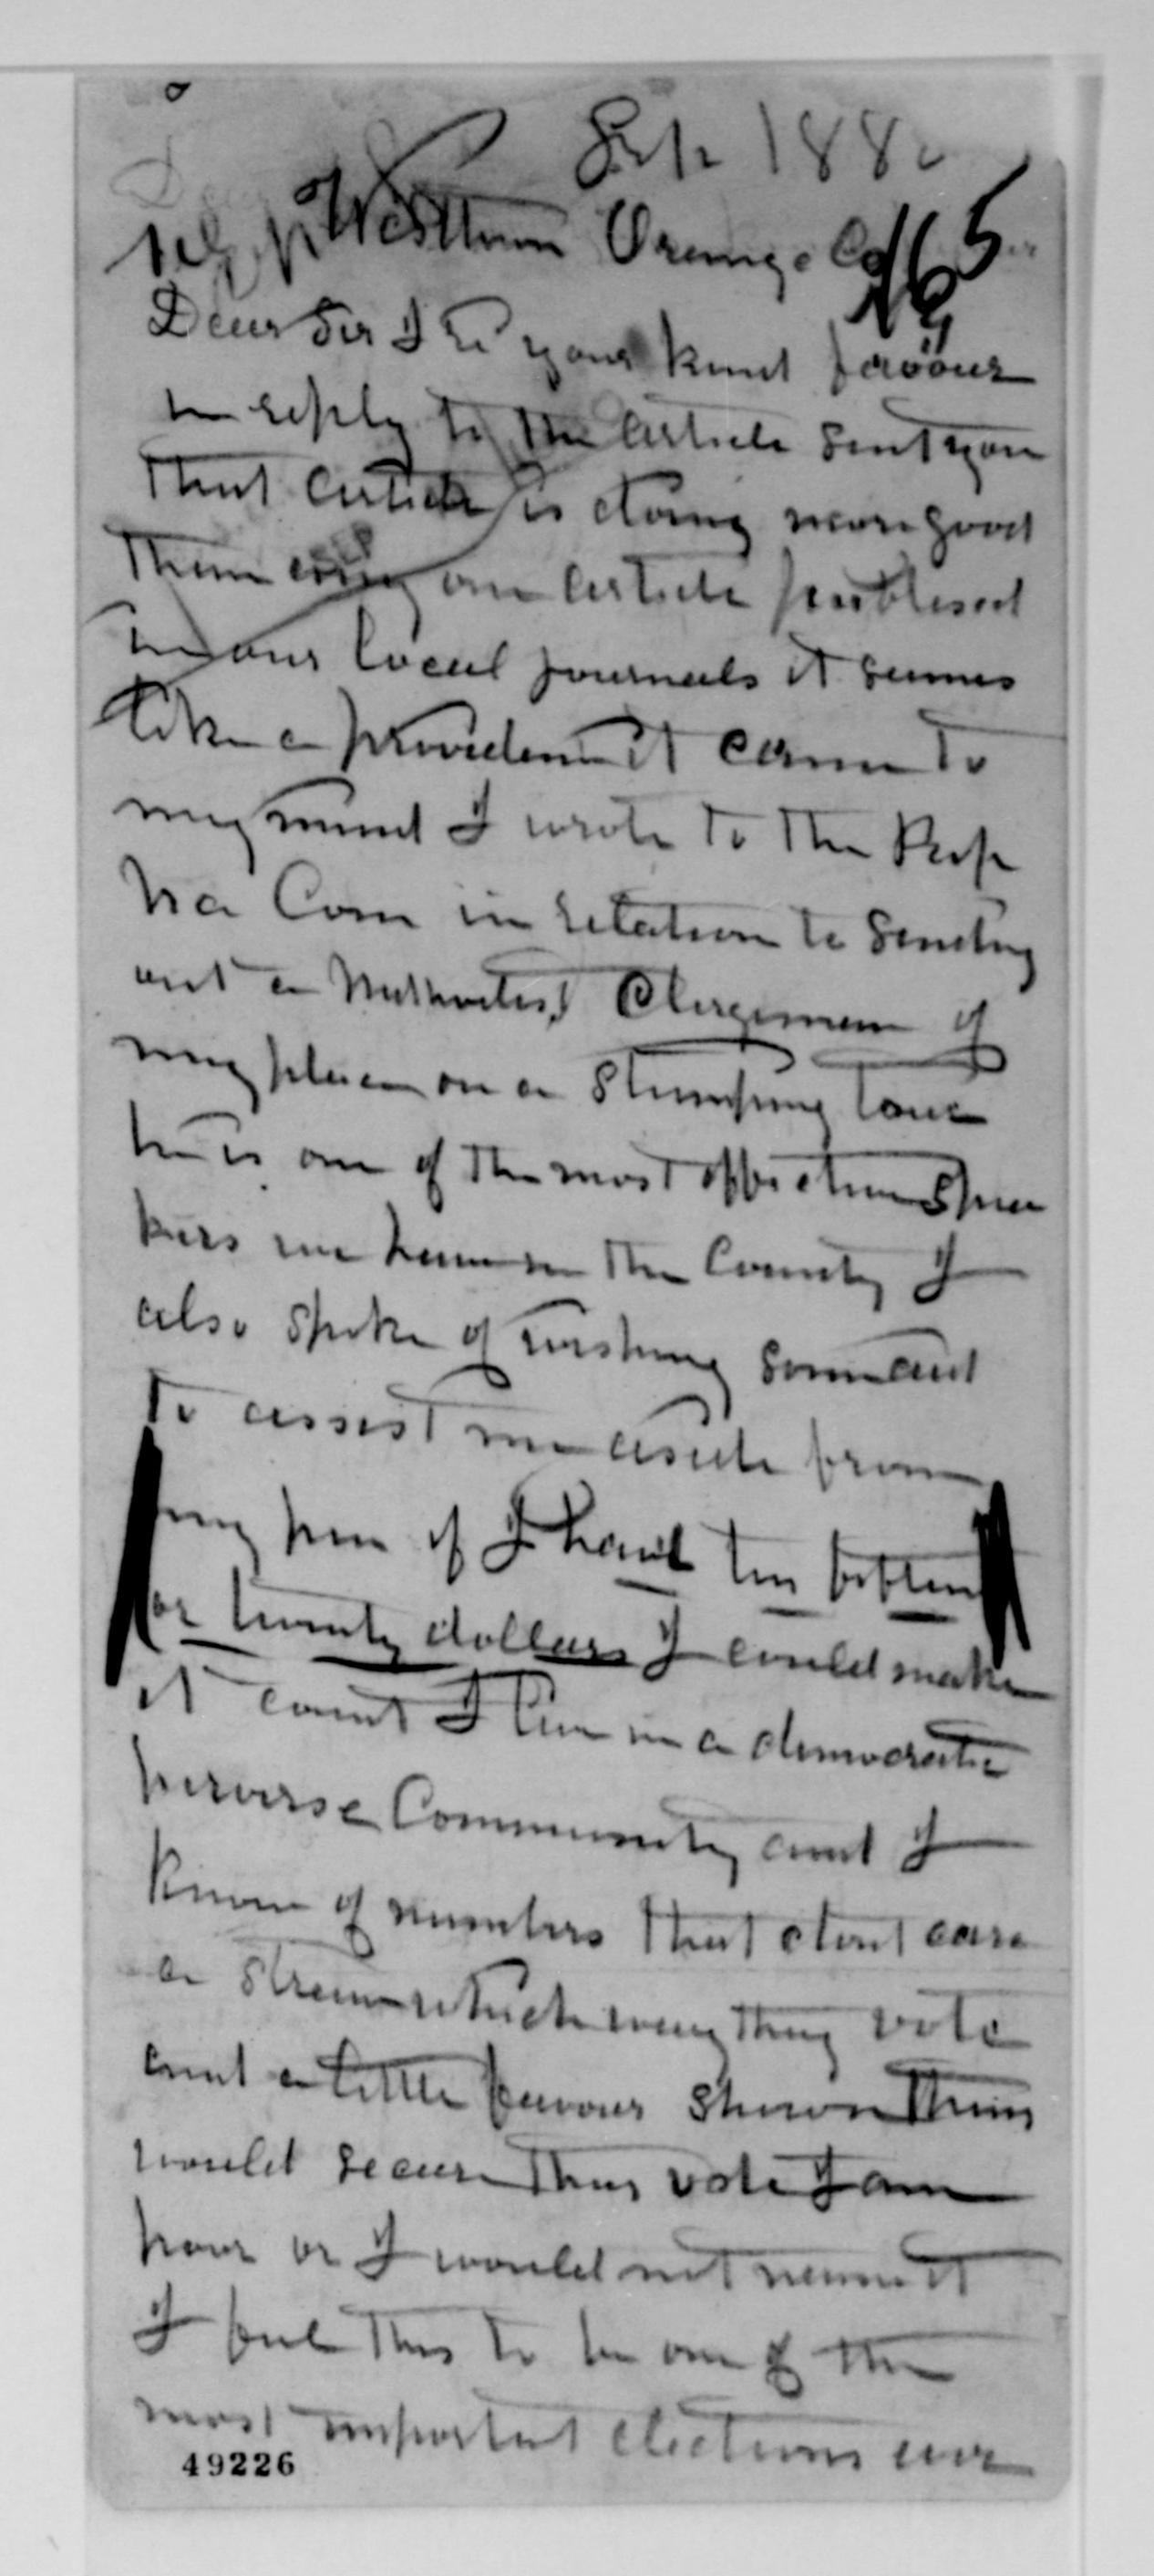 Sept 1880
Westtown Orange Co
Dear Sir I re your kind favour
in reply to the article sent you
that article is doing more good
than any one article publised
in our local journals it seemes
like a providence it came to
my mind I wrote to the Rep
Na Com in relation to sending
out a Methodist Clergeman of
my place on a stumping tour
he is one of the most effective spea
kers we have in the County I
also spoke of wishing some aid
to assist me aside from
my pen if I had ten fifteen
or twenty dollars I could make
it count I live in a democratic
perverse Community and I
know of numbers that dont care
a straw which way they vote
and a little favour shown them
would secure their vote I am
poor or I would not name it
I feel this to be one of the
most important elections ever
49226